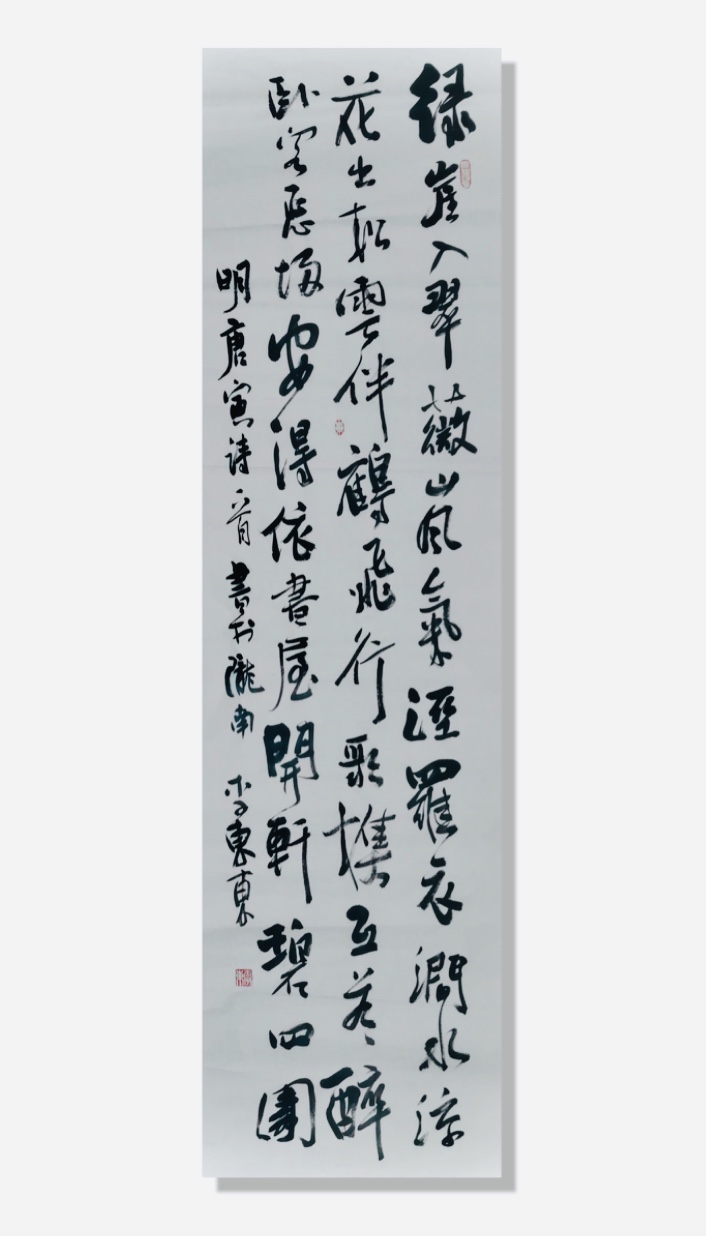 緑崖入翠薇嵐氣溼羅衣澗水浮
花出松雲伴鶴飛行歌樵互答醉
卧客忘歸安得依書屋開軒碧四圍
明唐寅诗一首書於隴南 李東東